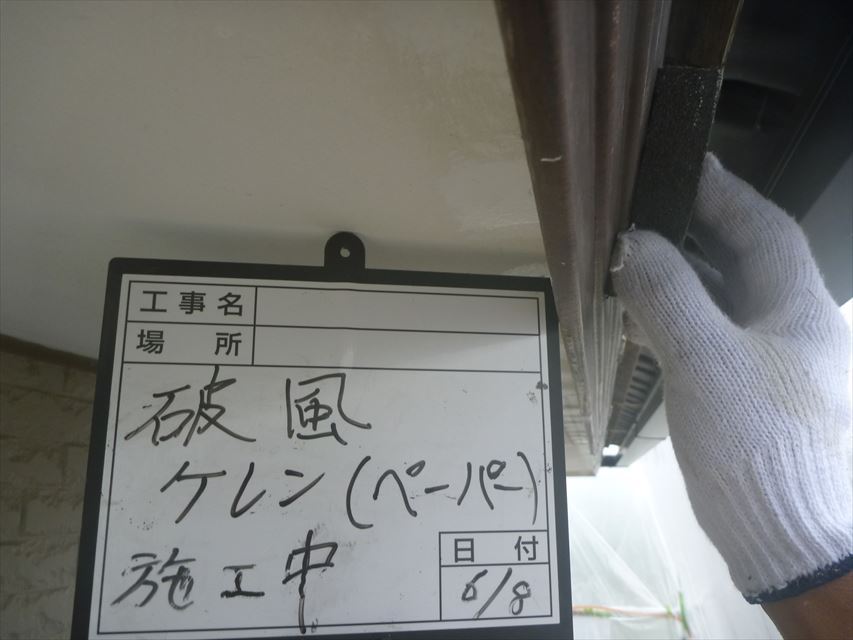 工事名
場所
破風
ケレン(ペーパー)
施工中
日付
6/8